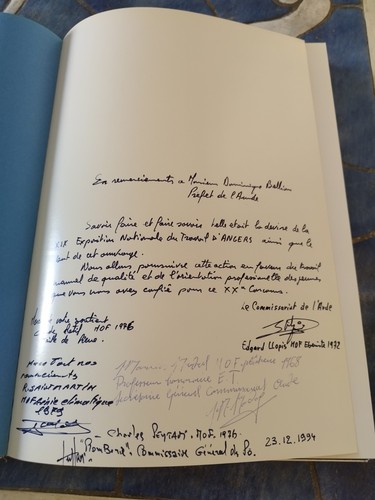 En remerciements a Monsieur Dominique Bellion
Préfet de l'Aude
Savoir faire et faire savoir telle était la devise de la
XIX Exposition Nationale du Travail d'ANGERS ainsi que le
but de cet ouvrage.
Nous allons poursuivre cette action en faveur du travail
manuel de qualité et de l'orientation professionnelle des jeunes
que vous nous avez confié pour ce XXe Concours.
Le Commissariat de l'Aude
Edgard Llopis MOF Ebéniste 1972
votre soutien
MOF 1976
Avec tout nos
remerciements
R. SAINT MARTIN
MOF
MOF 1968
Professeur honoraire E T
Général Aude
Charles MOF 1976.
"Bomberie" Commissaire Général du Po.
23.12.1994